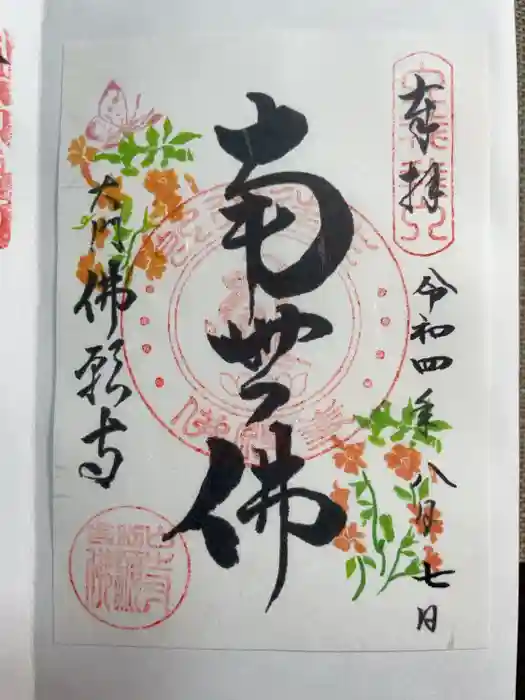 奉拝
令和四年八月七日
南無佛
大門佛願寺